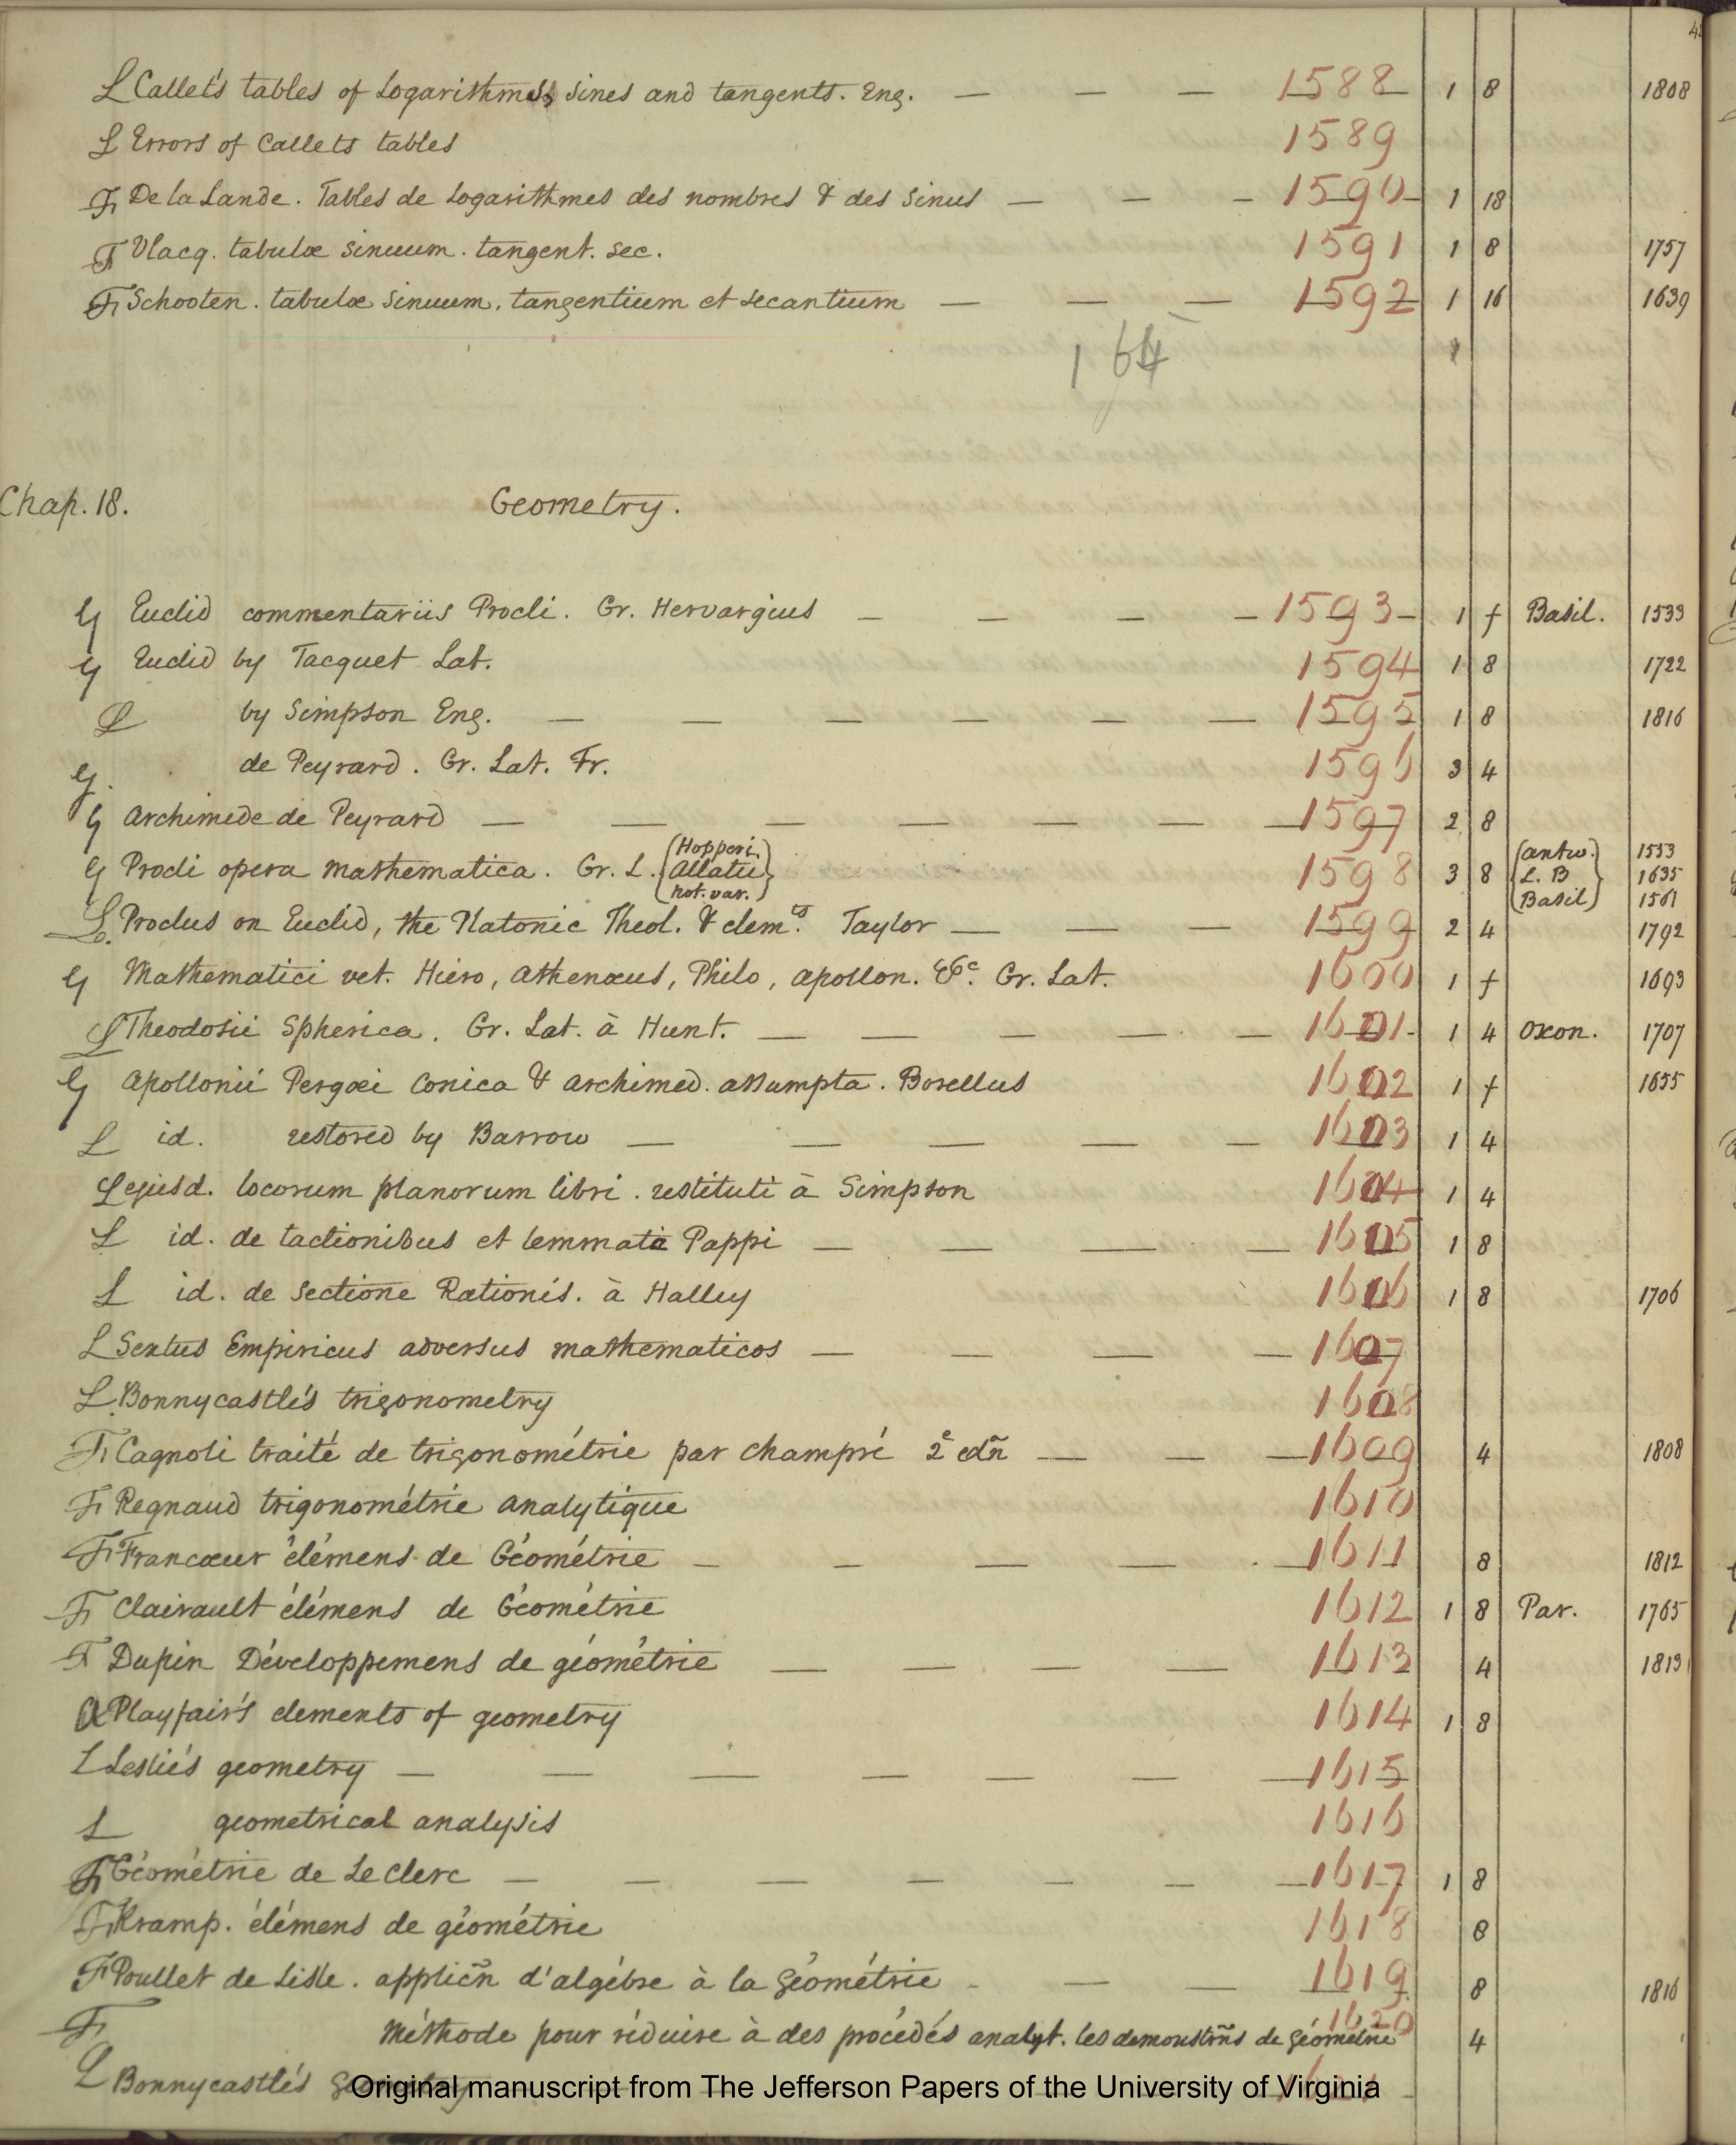 L Callet's tables of Logarithms, Sines and tangents. Eng. — — — 1588 1 8 1808
L Errors of Callets tables 1589
F De la Lande. Tables de Logarithmes des nombres & des Sinus — — — 1590 1 18
F Vlacq. tabulæ sinuum. tangent. sec. 1591 1 8 1757
F Schooten. tabulæ sinuum, tangentium et secantium — — — 1592 1 16 1639
164
Chap. 18. Geometry.
G Euclid commentariis Procli. Gr. Hervargius — — — — 1593 1 f Basil. 1533
G Euclid by Tacquet Lat. 1594 1 8 1722
L by Simpson Eng. — — — — — — 1595 1 8 1816
G. de Peyrard. Gr. Lat. Fr. 1596 3 4
G Archimede de Peyrard — — — — — — — 1597 2 8
G Procli opera mathematica. Gr. L. {Hopperi. Allatii not. var.} 1598 3 8 {Antw. L. B Basil} 1553 1635 1561
L. Proclus on Euclid, the Platonic Theol. & elem.ts Taylor — — — 1599 2 4 1792
G Mathematici vet. Hiero, Athenæus, Philo, Apollon. &c. Gr. Lat. 1600 1 f 1693
L Theodosii Spherica. Gr. Lat. à Hunt. — — — — — 1601 1 4 Oxon. 1707
G Apollonii Pergæi Conica & Archimed. assumpta. Borellus 1602 1 f 1655
L id. restored by Barrow — — — — — 1603 1 4
L ejusd. locorum planorum libri. restituti à Simpson 1604 1 4
L id. de tactionibus et lemmata Pappi — — — — 1605 1 8
L id. de Sectione Rationis. à Halley 1606 1 8 1706
L Sextus Empiricus adversus mathematicos — — — — 1607
L Bonnycastle's trigonometry 1608
F Cagnoli traité de trigonométrie par Champré 2e edñ — — — 1609 4 1808
F Regnaud trigonométrie analytique 1610
F Francœur élémens de Géométrie — — — — — 1611 8 1812
F Clairault élémens de Géométrie 1612 1 8 Par. 1765
F Dupin Développemens de géométrie — — — — 1613 4 1813
Playfair's elements of geometry 1614 1 8
L Leslie's geometry — — — — — — — 1615
L geometrical analysis 1616
F Géométrie de Le Clerc — — — — — — — 1617 1 8
F Kramp. élémens de géométrie 1618 8
F Poullet de Lisle. applicñ d'algébre à la Géométrie - — — 1619 8 1816
F Méthode pour réduire à des procédés analyt. les demonstrñs de géométrie 1620 4
L Bonnycastle's geometry 1621
Original manuscript from The Jefferson Papers of the University of Virginia